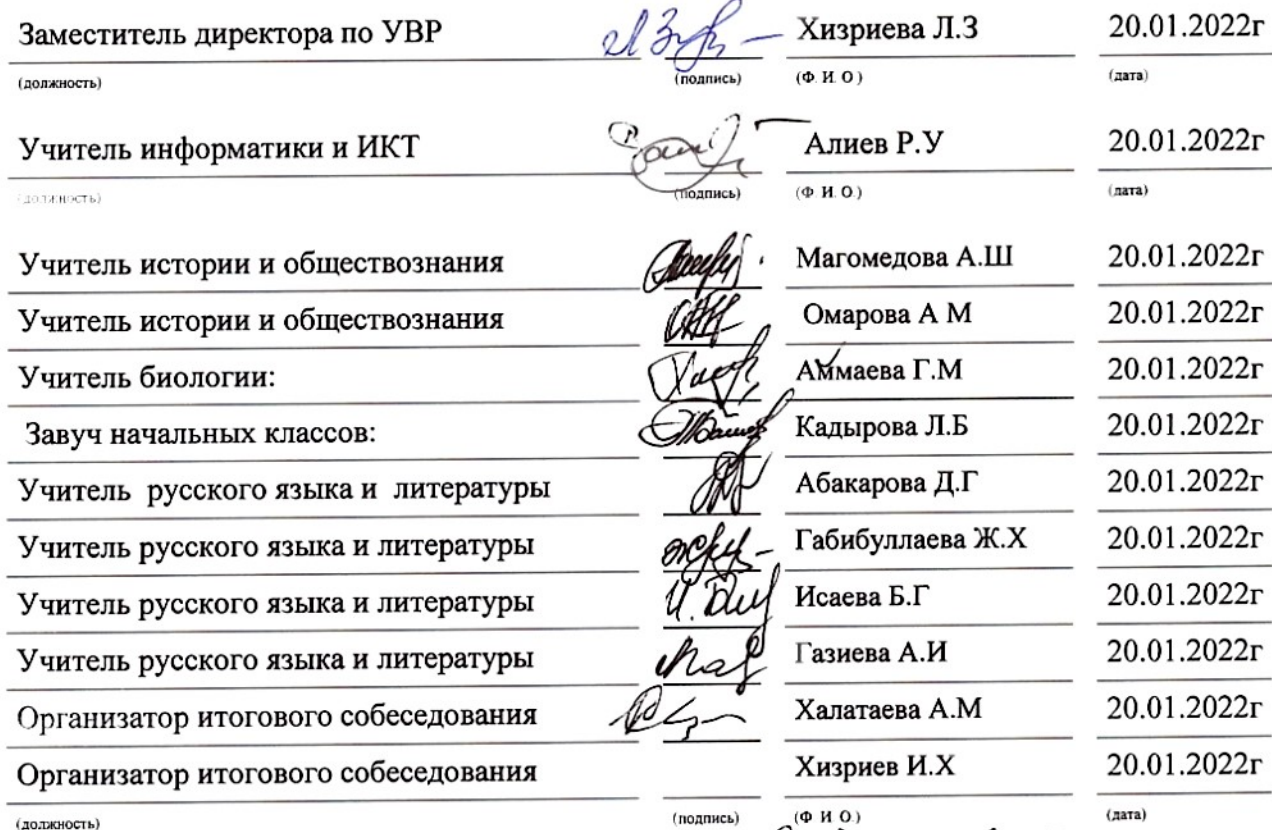 Заместитель директора по УВР Хизриева Л.З 20.01.2022г
(должность) (подпись) (Ф. И. О.) (дата)
Учитель информатики и ИКТ Алиев Р.У 20.01.2022г
(должность) (подпись) (Ф. И. О.) (дата)
Учитель истории и обществознания Магомедова А.Ш 20.01.2022г
Учитель истории и обществознания Омарова А М 20.01.2022г
Учитель биологии: Аммаева Г.М 20.01.2022г
Завуч начальных классов: Кадырова Л.Б 20.01.2022г
Учитель русского языка и литературы Абакарова Д.Г 20.01.2022г
Учитель русского языка и литературы Габибуллаева Ж.Х 20.01.2022г
Учитель русского языка и литературы Исаева Б.Г 20.01.2022г
Учитель русского языка и литературы Газиева А.И 20.01.2022г
Организатор итогового собеседования Халатаева А.М 20.01.2022г
Организатор итогового собеседования Хизриев И.Х 20.01.2022г
(должность) (подпись) (Ф. И. О.) (дата)